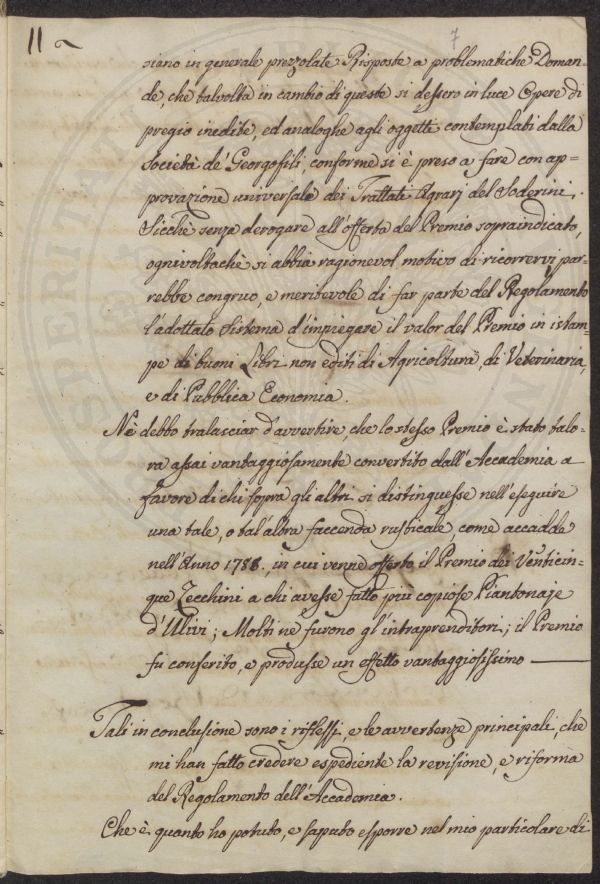 11
7
sieno in generale prezzolate Risposte a problematiche Doman-
de, che talvolta in cambio di queste si dessero in luce Opere di
pregio inedite, ed analoghe agli oggetti contemplati dalla
Società de' Georgofili, conforme si è preso a fare con ap=
provazione universale dei Trattati Agrarj del Soderini.
Sicchè senza derogare all'offerta del Premio sopraindicato,
ognivoltachè si abbia ragionevol motivo di ricorrervi par-
rebbe congruo, e meritevole di far parte del Regolamento
l'adottato Sistema d'impiegare il valor del Premio in istam-
pe di buoni Libri non editi di Agricoltura, di Veterinaria,
e di Pubblica Economia.
Nè debbo tralasciar d'avvertire, che lo stesso Premio è stato talo-
ra assai vantaggiosamente convertito dall'Accademia a
favore di chi sopra gli altri si distinguesse nell'eseguire
una tale, o tal'altra faccenda rusticale, come accadde
nell'Anno 1788., in cui venne offerto il Premio dei Venticin-
que Zecchini a chi avesse fatto più copiose Piantonaje
d'Ulivi; Molti ne furono gl'intraprenditori; il Premio
fu conferito, e produsse un effetto vantaggiosissimo
Tali in conclusione sono i riflessi, e le avvertenze principali, che
mi han fatto credere espediente la revisione, e riforma
del Regolamento dell'Accademia.
Che è quanto ho potuto, e saputo esporre nel mio particolare di